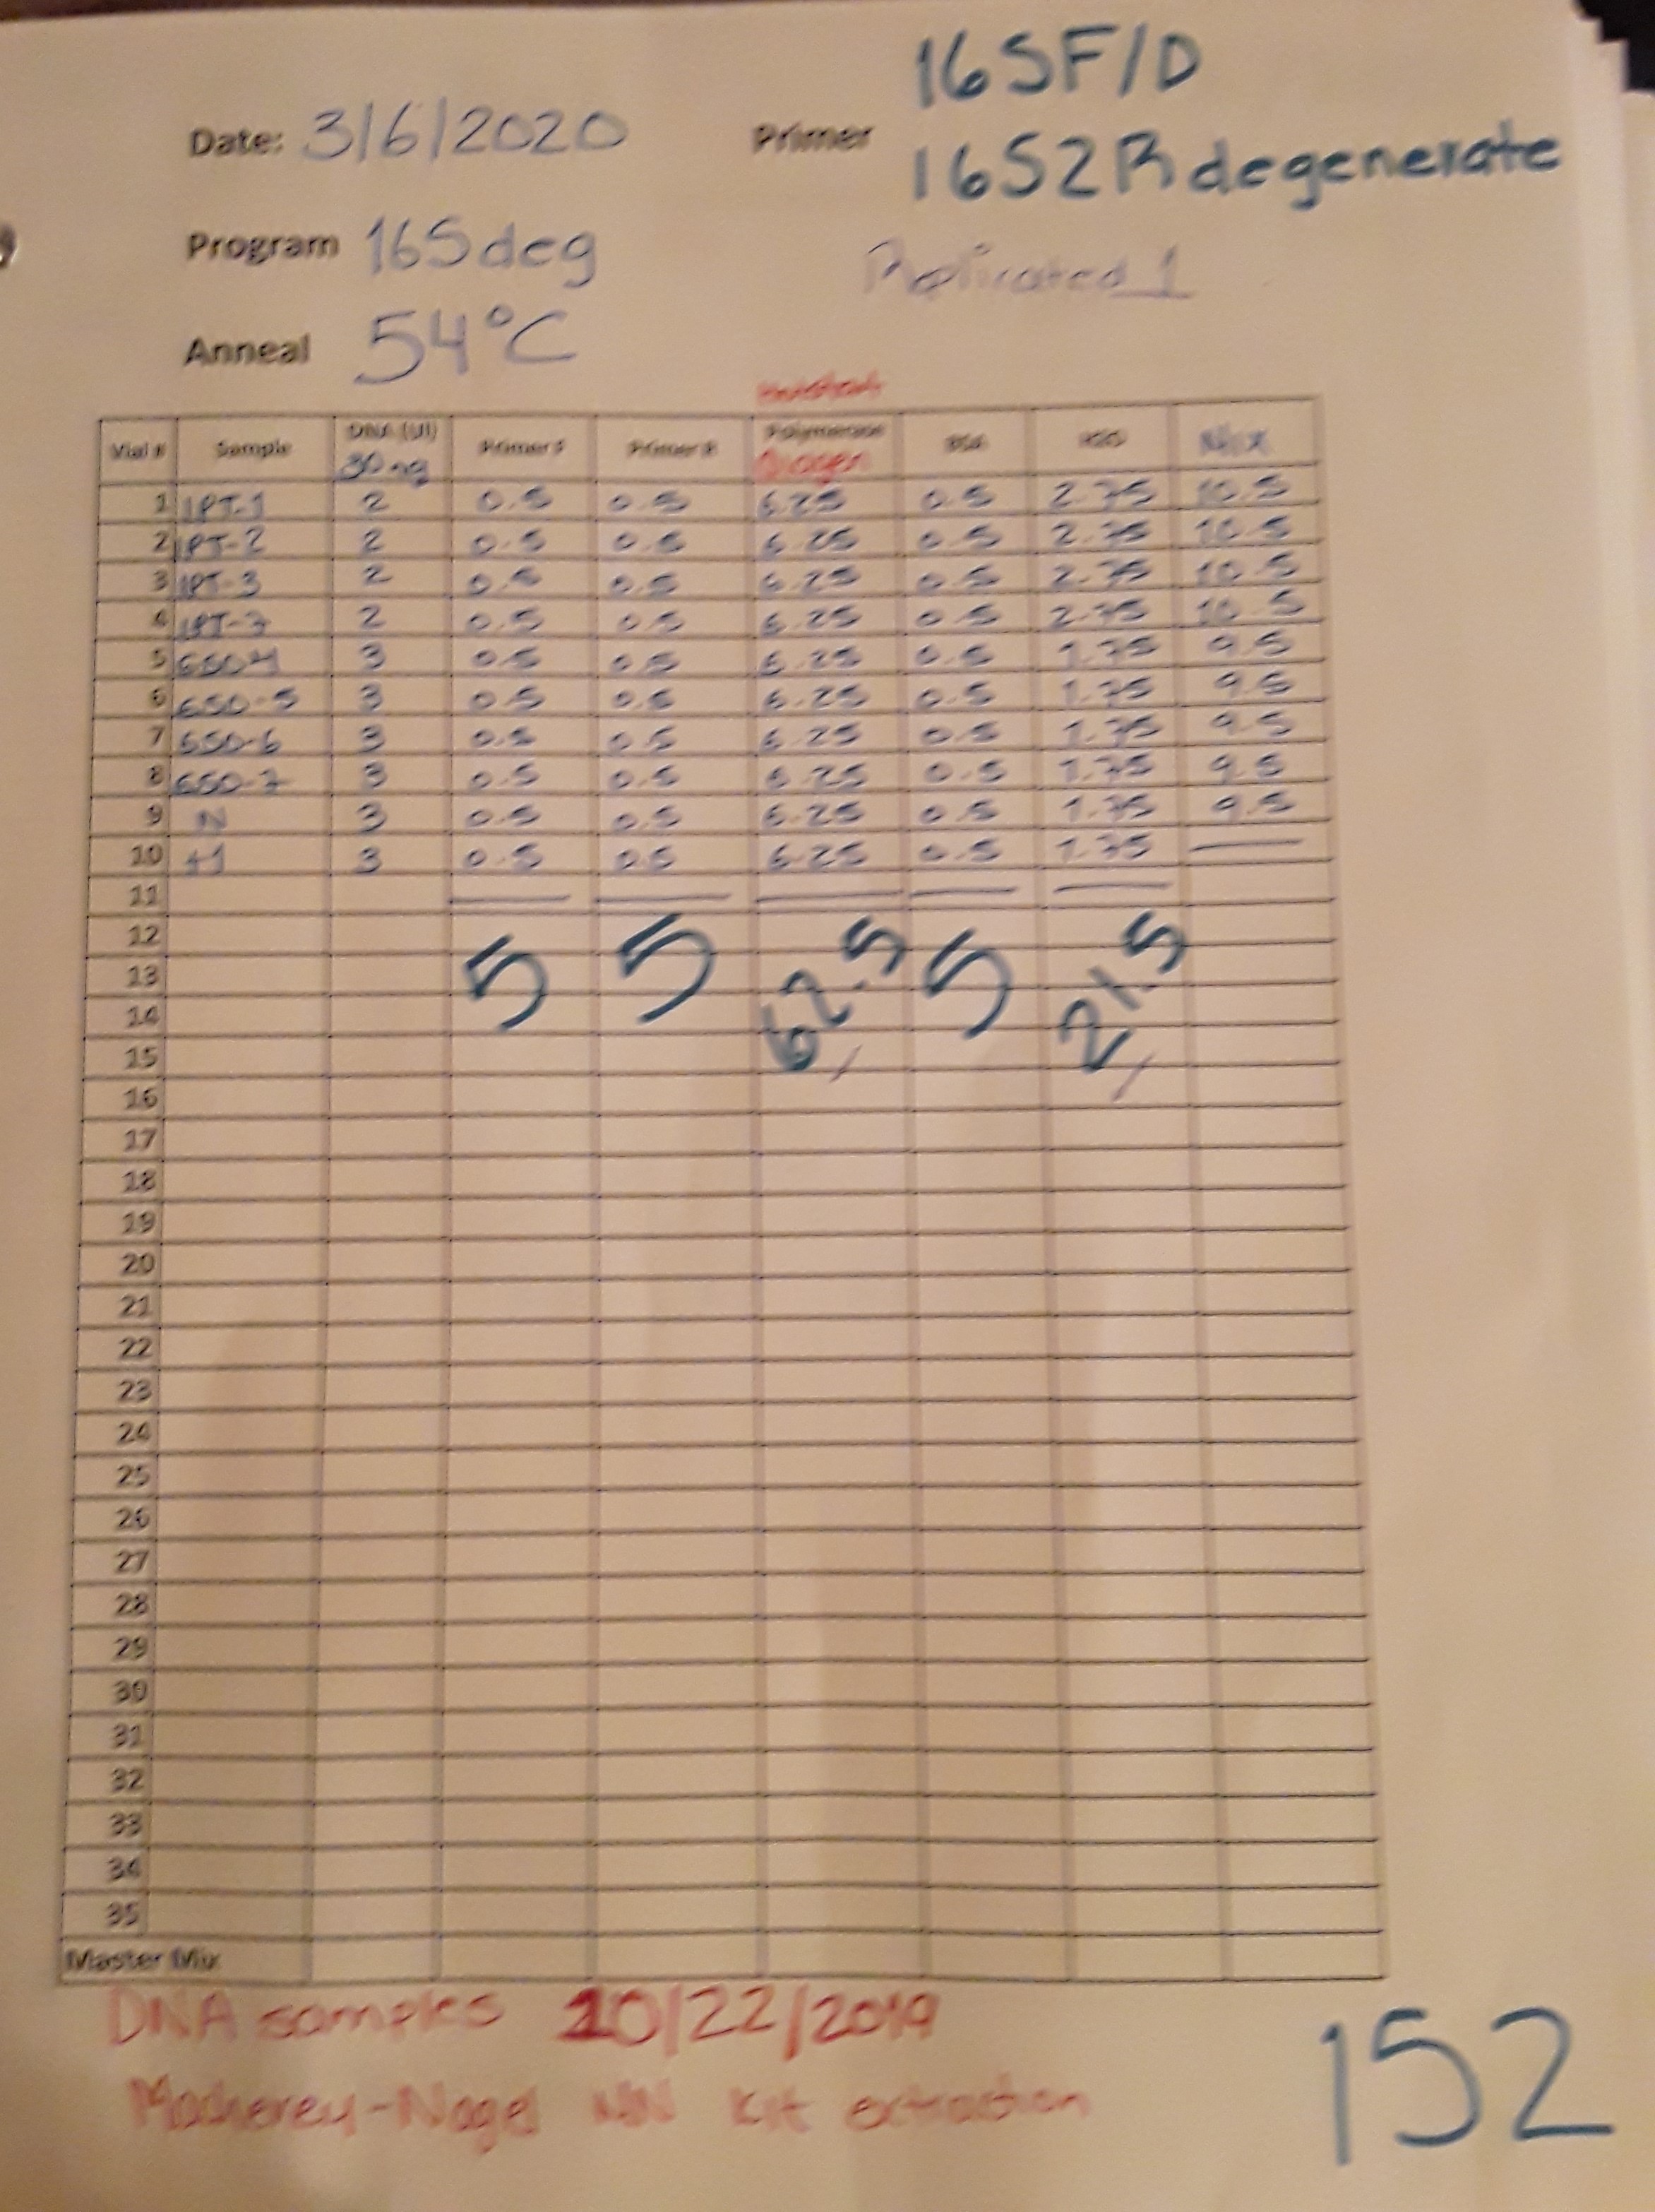 16SF/D
Date: 3/6/2020 Primer
16S2R degenerate
Program 16Sdeg
Replicated 1
Anneal 54°C
Vial # Sample DNA (Ul) Primer F Primer R Polymerase BSA H2O Mix
30 ng Qiagen
1 IPT-1 2 0.5 0.5 6.25 0.5 2.75 10.5
2 IPT-2 2 0.5 0.5 6.25 0.5 2.75 10.5
3 IPT-3 2 0.5 0.5 6.25 0.5 2.75 10.5
4 IPT-7 2 0.5 0.5 6.25 0.5 2.75 10.5
5 650-4 3 0.5 0.5 6.25 0.5 1.75 9.5
6 650-5 3 0.5 0.5 6.25 0.5 1.75 9.5
7 650-6 3 0.5 0.5 6.25 0.5 1.75 9.5
8 650-7 3 0.5 0.5 6.25 0.5 1.75 9.5
9 N 3 0.5 0.5 6.25 0.5 1.75 9.5
10 +1 3 0.5 0.5 6.25 0.5 1.75
11
12
13 5 5 62.5 5 21.5
14
15
16
17
18
19
20
21
22
23
24
25
26
27
28
29
30
31
32
33
34
35
Master Mix
DNA samples 10/22/2019
Macherey-Nagel MN Kit extraction
152